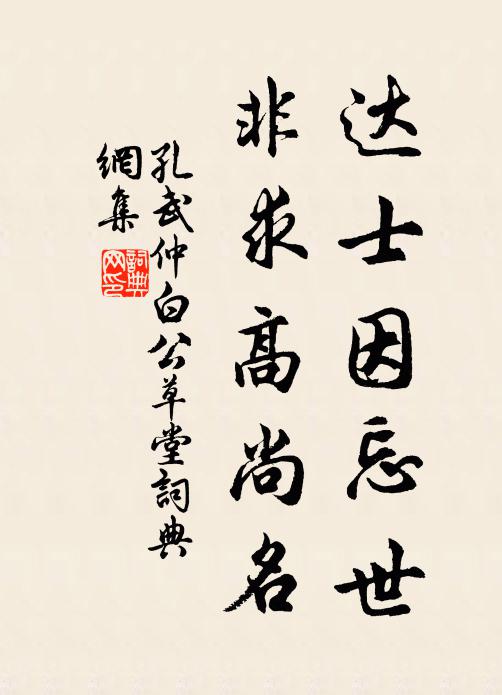 达士因忘世
非求高尚名
孔武仲白公草堂詞典
網集
詞典
网印